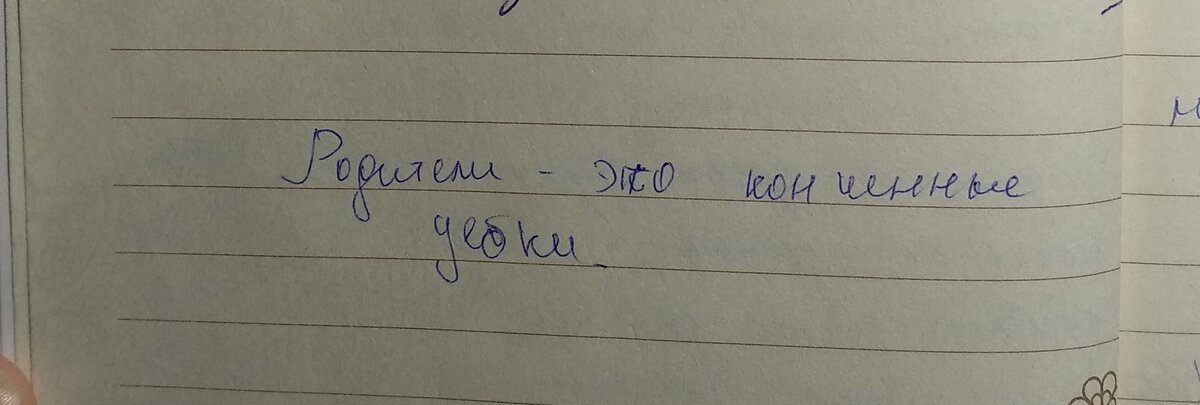 Родители - это конченные
уебки.